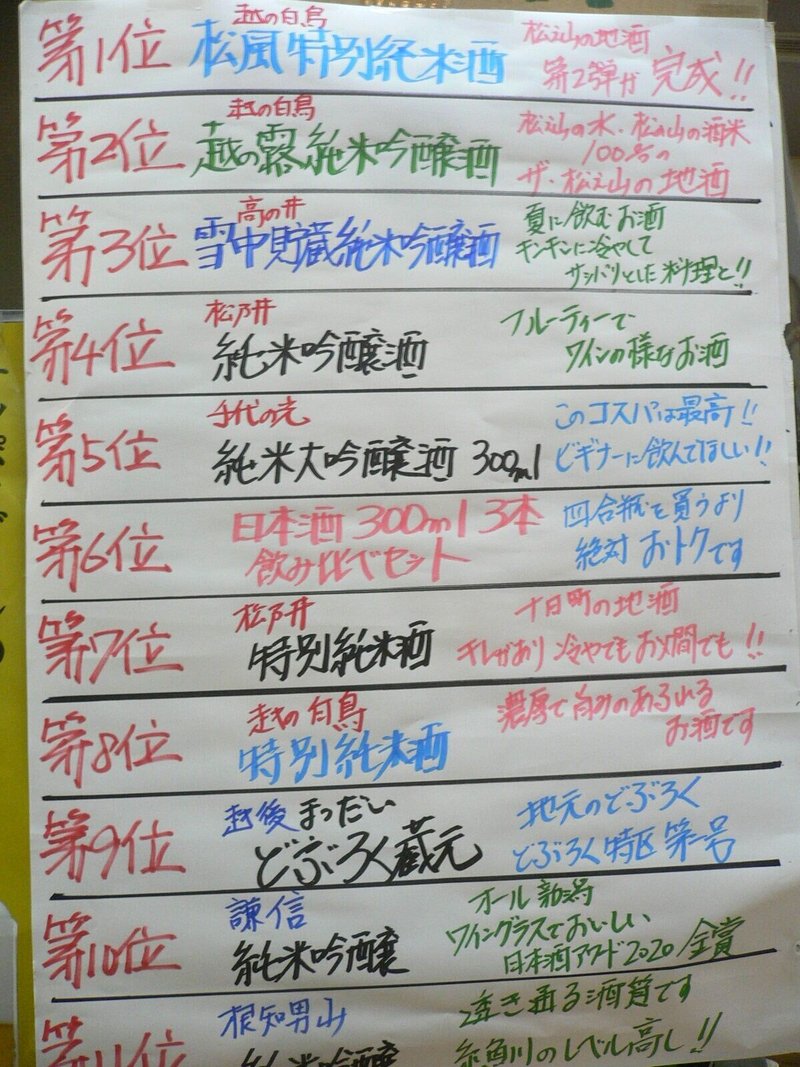 第1位
越の白鳥
松風特別純米酒
松之山の地酒
第2弾が完成!!
第2位
越の白鳥
越の露純米吟醸酒
松之山の水・松之山の酒米
100%の
ザ・松之山の地酒
第3位
高の井
雪中貯蔵純米吟醸酒
夏に飲むお酒
キンキンに冷やして
サッパリとした料理と!!
第4位
松乃井
純米吟醸酒
フルーティーで
ワインの様なお酒
第5位
千代の光
純米大吟醸酒 300ml
このコスパは最高!!
ビギナーに飲んでほしい!!
第6位
日本酒 300ml 3本
飲み比べセット
四合瓶を買うより
絶対 おトクです
第7位
松乃井
特別純米酒
十日町の地酒
キレがあり 冷やでもお燗でも!!
第8位
越の白鳥
特別純米酒
濃厚で旨みのあふれる
お酒です
第9位
越後まつだい
どぶろく蔵元
地元のどぶろく
どぶろく特区第一号
第10位
謙信
純米吟醸
オール新潟
ワイングラスでおいしい
日本酒アワード2020 金賞
第11位
根知男山
純米吟醸
透き通る酒質です
糸魚川のレベル高し!!